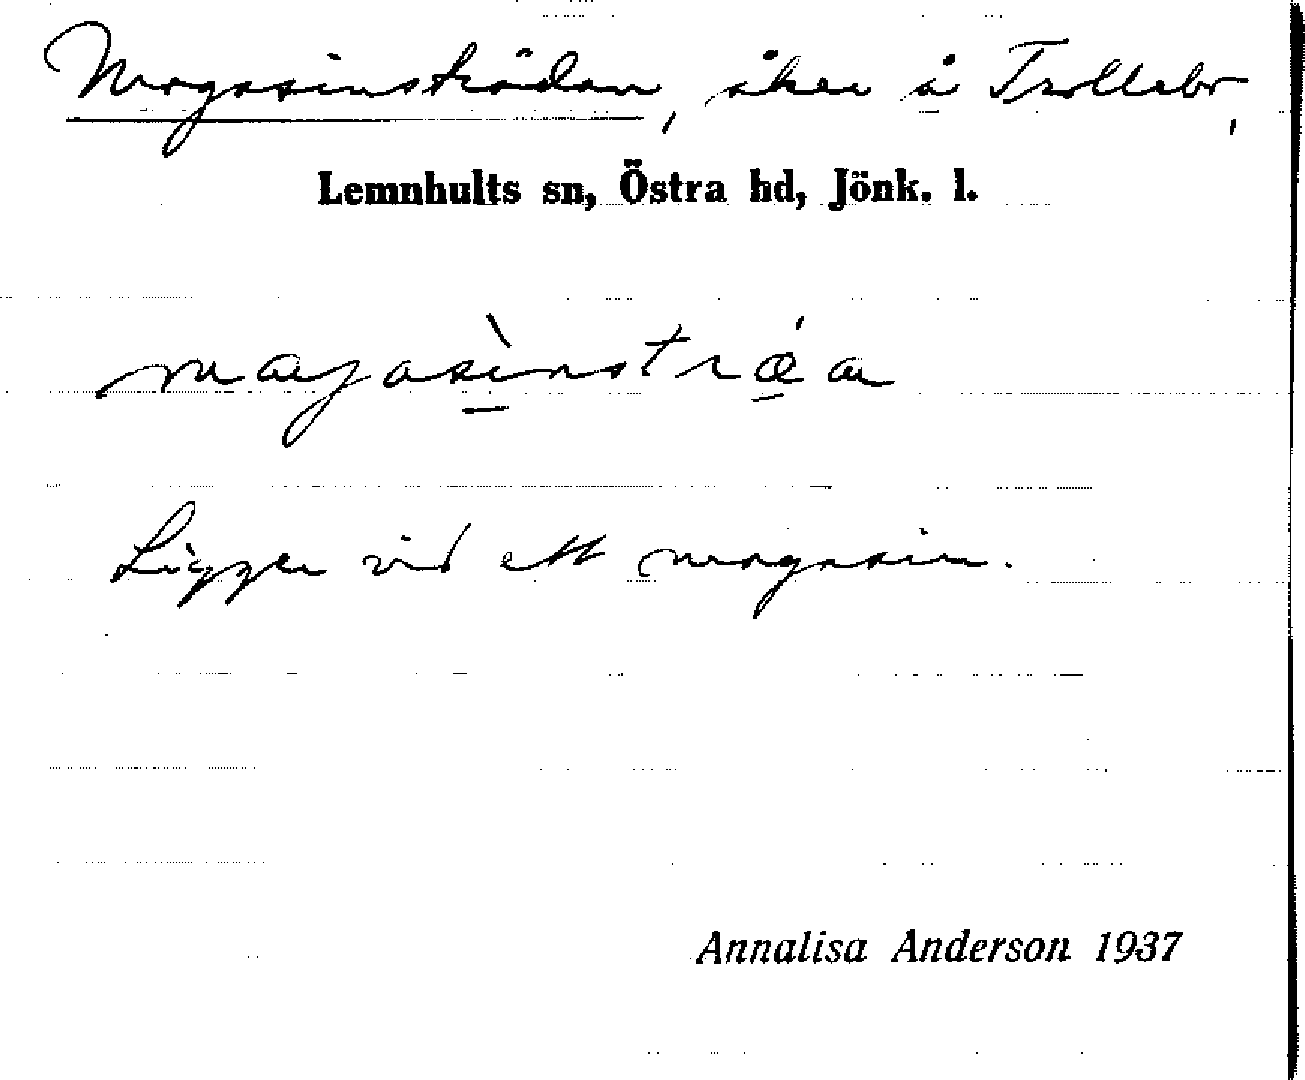 Magasinsträdan, åker å Trollebo,
Lemnhults sn, Östra hd, Jönk. l.
magasìnstrǽa
Ligger vid ett magasin.
Annalisa Anderson 1937